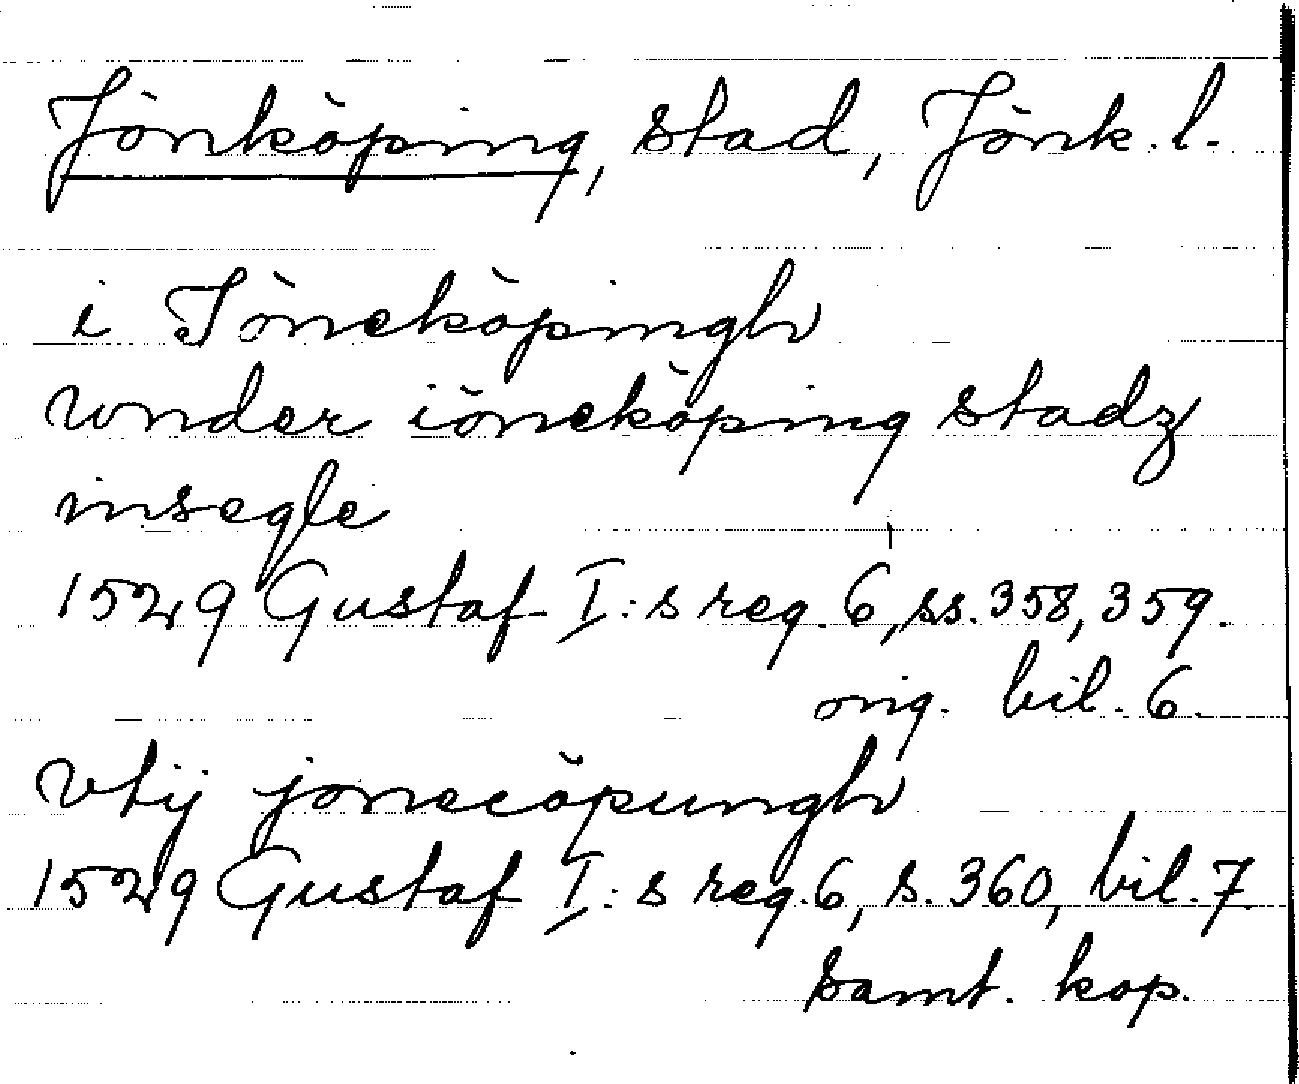 Jönköping, stad, Jönk. l.
i Jöneköpingh
vnder iöneköping stadz
insegle
1529 Gustaf I:s reg. 6, ss. 358, 359.
orig. bil. 6.
vtij jonecöpungh
1529 Gustaf I:s reg. 6, s. 360, bil. 7
samt. kop.